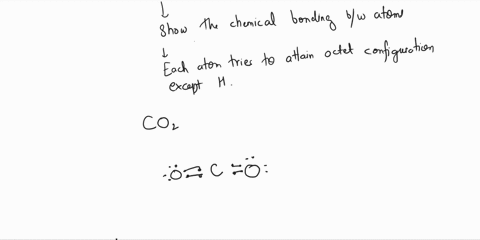 ↓
Show the chemical bonding b/w atoms
↓
Each atom tries to attain octet configuration
except H.
CO₂
:Ö = C = Ö: